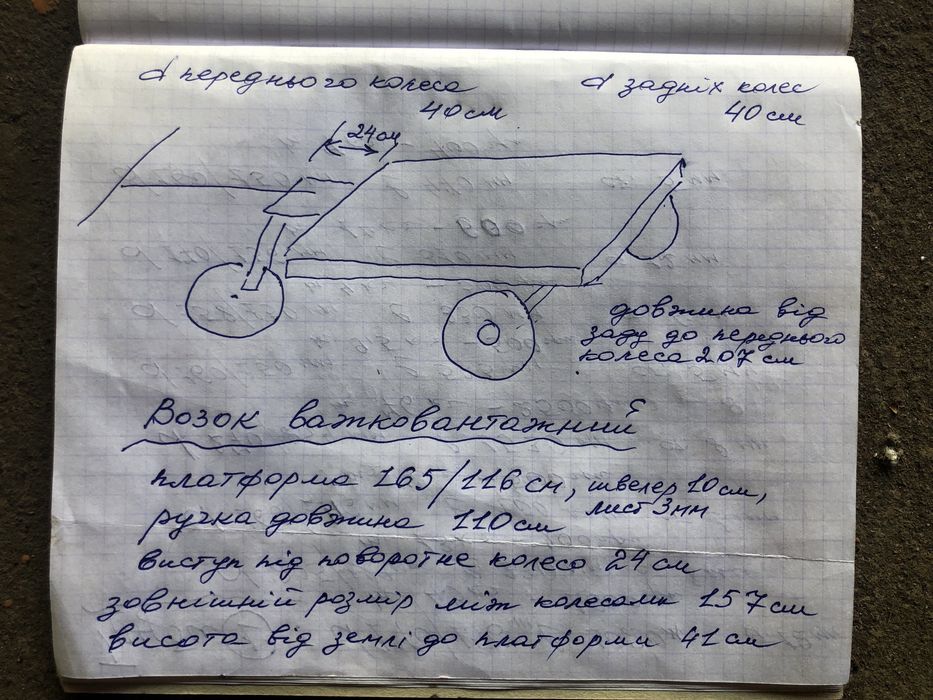 d переднього колеса
40см
d задніх колес
40 см
24см
довжина від
заду до переднього
колеса 207 см
Возок важковантажний
платформа 165/116 см, швелер 10 см,
лист 3 мм
ручка довжина 110 см
виступ під поворотне колесо 24 см
зовнішній розмір між колесами 157 см
висота від землі до платформи 41 см